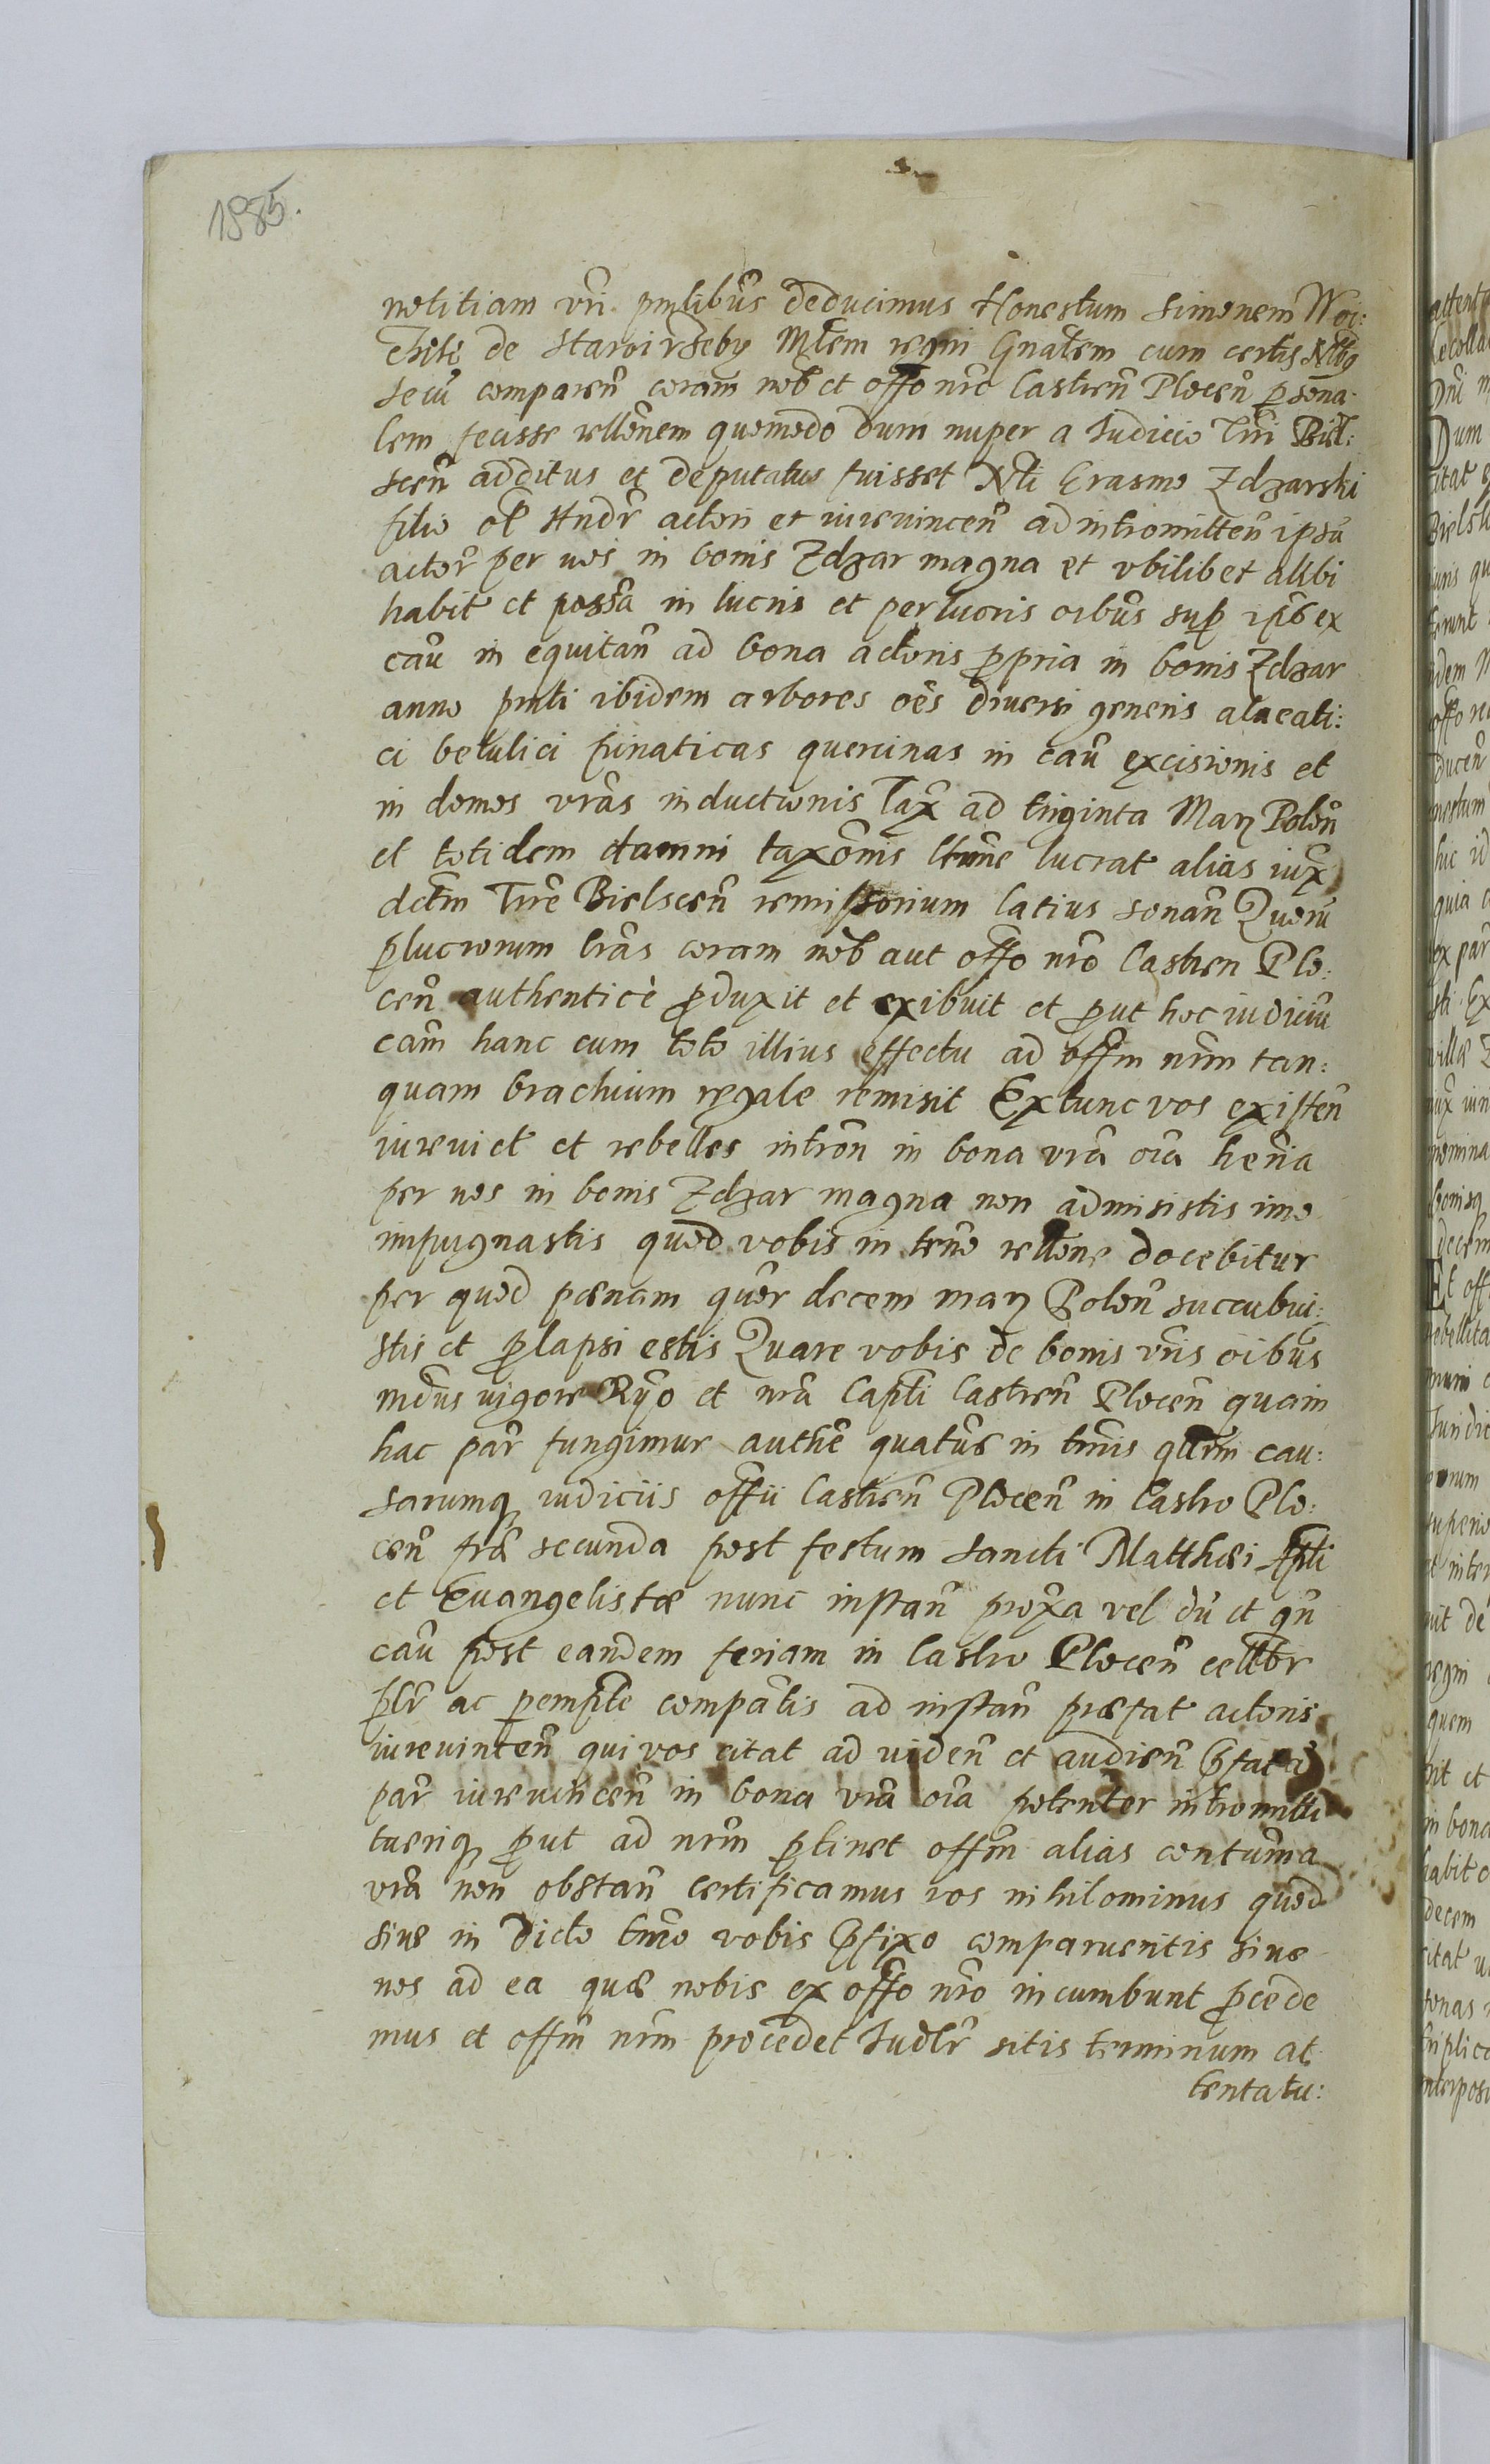 1885.
notitiam vri pntibus deducimus Honestum Simonem Woi:
de Staroirzeby Mtem regni Gnalem cum certis Nbus
secu comparen coram nob et offo nro Castren Plocen psona:
lem fecisse rellonem quomodo dum nuper a Judicio Trri Biel:
scen additus et deputatus fuisset Nli Erasmo Zdzarski
filio ol Andr actori et iurevincen ad intromitten ipsu
actor per vos in bonis Zdzar magna et vbilibet alibi
habit et possa in lucris et perlucris oibus sup ipis ex
cau in equitan ad bona actoris ppria in bonis Zdzar
anno pnti ibidem arbores oes diversi generis alneati:
ci betulici pinaticas quercinas in cau excisionis et
in domos vras inductionis Tax ad triginta Marz Polon
et totidem damni taxonis ltime lucrat alias iux
dctm Trre Bielscen remissorium latius sonan Quoru
plucrorum lras coram nob aut offo nro Castren Plo:
cen authentice pduxit et exibuit et put hoc iudiciu
cam hanc cum toto illius effectu ad offm nrm tan:
quam brachium regale remisit Extunc vos existen
iurevict et rebelles intron in bona vra oia hena
per vos in bonis Zdzar magna non admisistis imo
impugnastis quod vobis in trno rellone docebitur
per quod pænam quor decem marz Polon succubui:
stis et plapsi estis Quare vobis de bonis vris oibus
mdmus vigore Rgo et nra Capti Castren Plocen quam
hac par fungimur authe quatus in tmis qurm cau:
sarumq iudiciis offii Castren Plocen in Castro Plo:
cen fra secunda post festum Sancti Matthæi Apti
et Euangelistæ nunc instan proxa vel du et qn
cau post eandem feriam in Castro Plocen cellbr
plr ac pempte compatis ad instan præfat actoris
iurevincen qui vos citat ad viden et audien pfata
par iurevincen in bona vra oia potenter intromitti
tuerique put ad nrm ptinet offm alias contuma
vra non obstan certificamus vos nihilominus quod
sive in dicto tmo vobis pfixo comparueritis sive
nos ad ea quæ nobis ex offo nro incumbunt pcede
mus et offm nrm procedet Judlr sitis terminum at
tentatu: